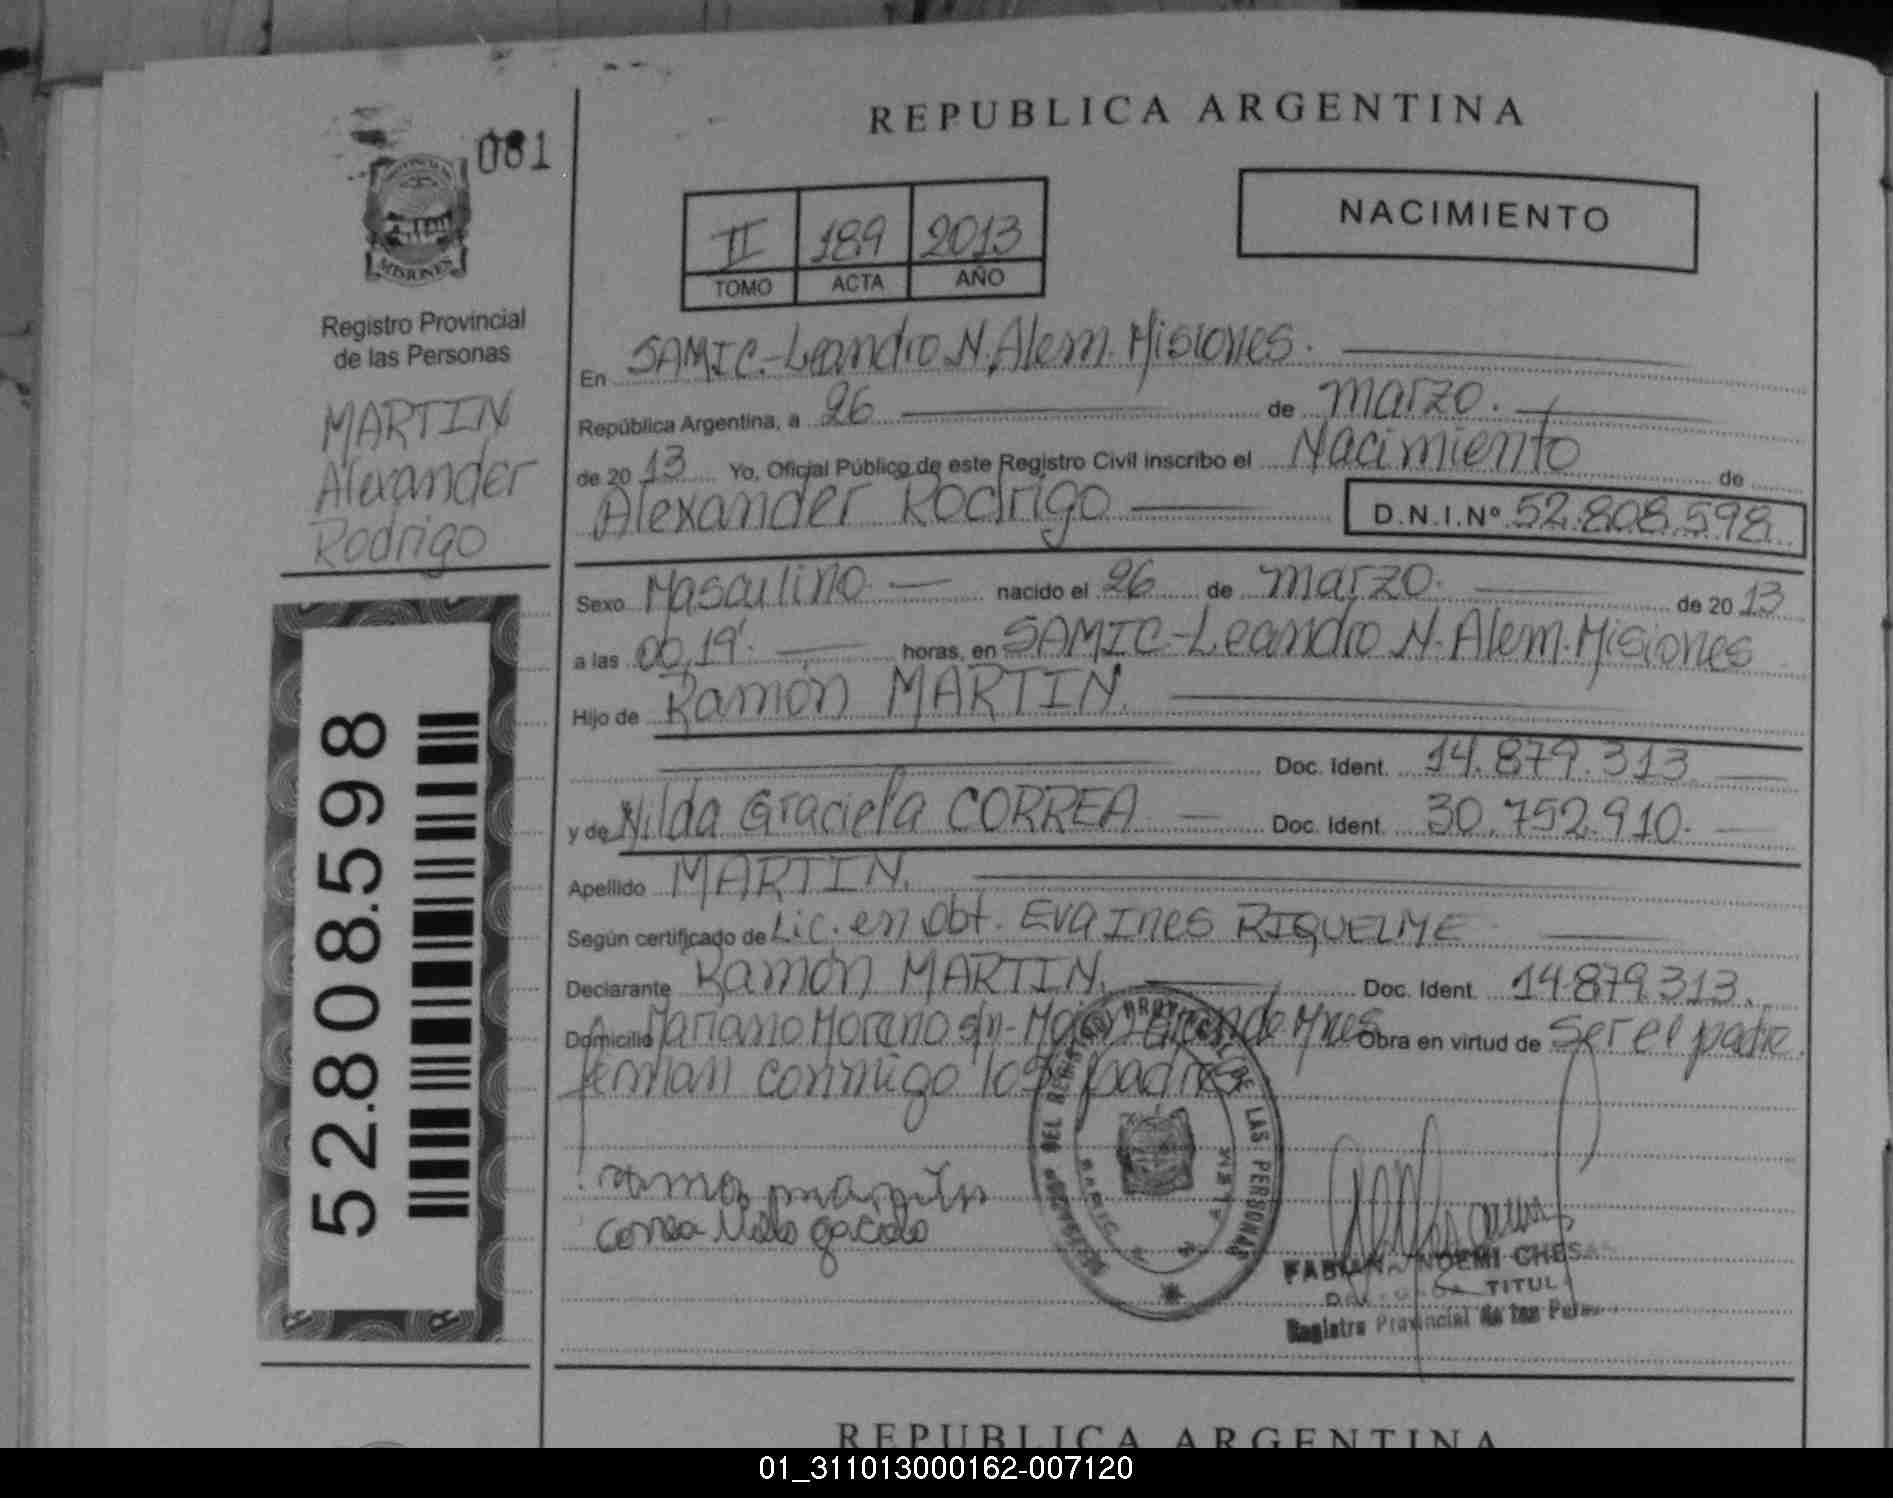 REPUBLICA ARGENTINA
081
PROVINCIA DE
MISIONES
Registro Provincial
de las Personas
MARTIN
Alexander
Rodrigo
52.808.598
II 189 2013
TOMO ACTA AÑO
NACIMIENTO
En SAMIC-Leandro N. Alem. Misiones.
República Argentina, a 26 de marzo.
de 2013 Yo, Oficial Público de este Registro Civil inscribo el Nacimiento de
Alexander Rodrigo D.N.I.Nº 52.808.598
Sexo Masculino nacido el 26 de marzo. de 2013
a las 00,19'. horas, en SAMIC-Leandro N. Alem. Misiones
Hijo de Ramón MARTIN.
Doc. Ident. 14.879.313
y de Nilda Graciela CORREA Doc. Ident. 30.752.910.
Apellido MARTIN.
Según certificado de Lic. en Obt. Eva Ines RIQUELME
Declarante Ramón MARTIN. Doc. Ident. 14.879.313.
Domicilio Mariano Moreno s/n- Grande Mnes Obra en virtud de ser el padre.
firman conmigo los padres
DEL REGISTRO PROVINCIAL DE LAS PERSONAS
ALEM
correa
FABIANA NOEMI CHESA
TITUL
Registro Provincial de las Perso
REPUBLICA ARGENTINA
01_311013000162-007120